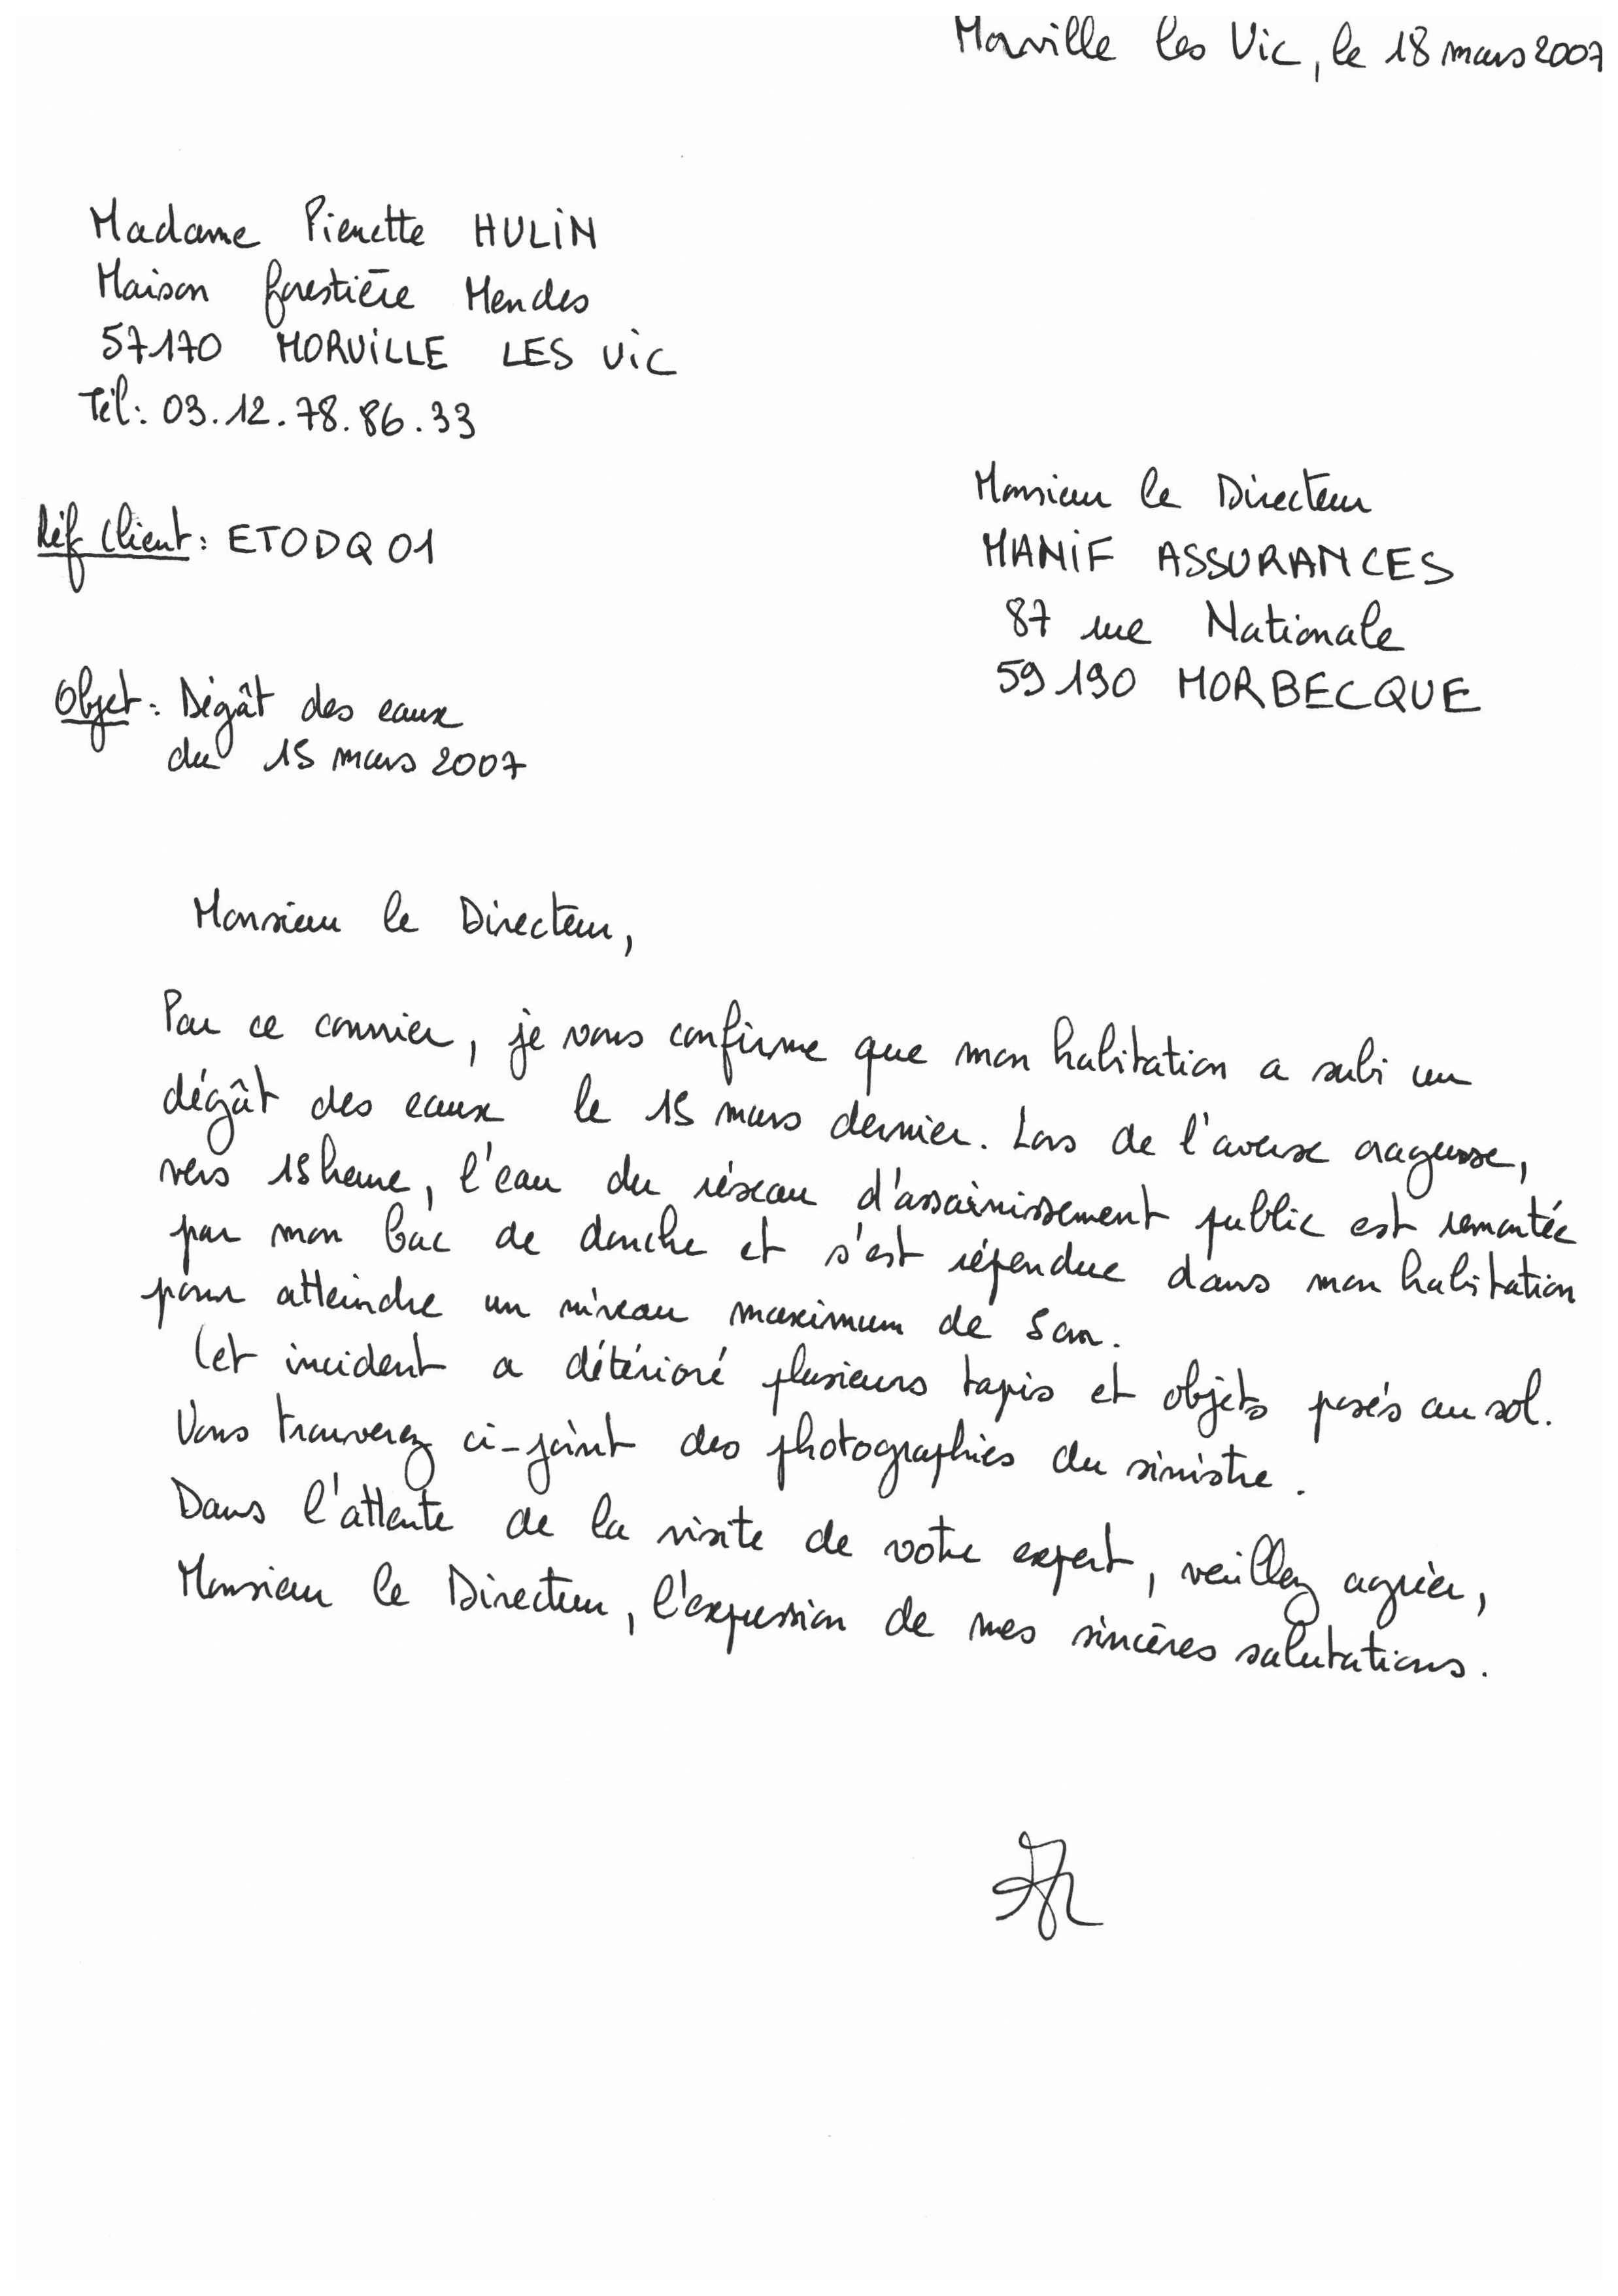 Morville les Vic, le 18 mars 2007
Madame Pierrette HULIN
Maison forestière Mendes
57170 MORVILLE LES VIC
Tél: 03.12.78.86.33
Réf Client: ETODQ01
Monsieur le Directeur
MANIF ASSURANCES
87 rue Nationale
59190 MORBECQUE
Objet: Dégât des eaux
du 15 mars 2007
Monsieur le Directeur,
Par ce courrier, je vous confirme que mon habitation a subi un
dégât des eaux le 15 mars dernier. Lors de l'averse orageuse,
vers 15heure, l'eau du réseau d'assainissement public est remontée
par mon bac de douche et s'est répendue dans mon habitation
pour atteindre un niveau maximum de 5cm.
Cet incident a détérioré plusieurs tapis et objets posés au sol.
Vous trouverez ci-joint des photographies du sinistre.
Dans l'attente de la visite de votre expert, veuillez agréer,
Monsieur le Directeur, l'expression de mes sincères salutations.